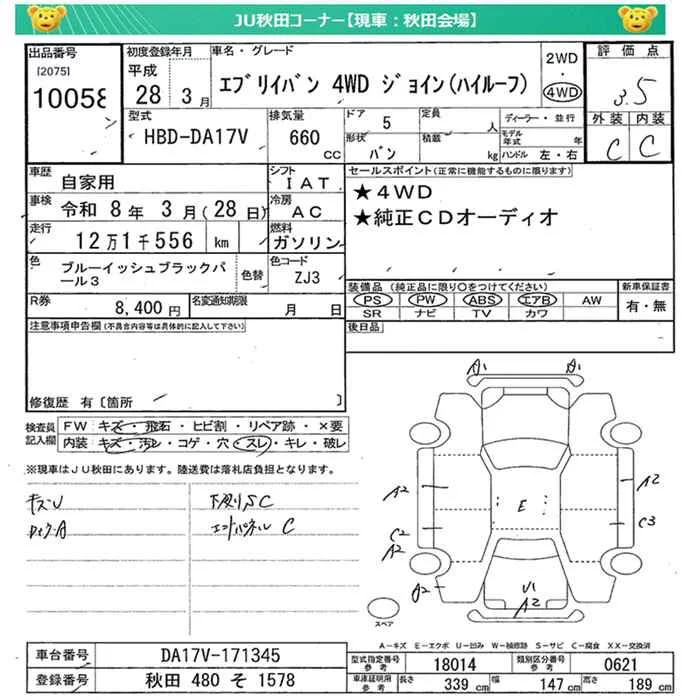 JU秋田コーナー【現車：秋田会場】
出品番号
[2075]
10058
初度登録年月
平成
28 3月
車名・グレード
エブリイバン 4WD ジョイン(ハイルーフ)
2WD
・
4WD
評価点
3.5
外装 内装
C C
型式
HBD-DA17V
排気量
660
cc
ドア 5
形状 バン
定員 人
積載 kg
ディーラー・並行
モデル年式 年
ハンドル 左・右
車歴
自家用
シフト
IAT
車検
令和 8年 3月(28日)
冷房
AC
走行
12万1千556 km
燃料
ガソリン
色
ブルーイッシュブラックパール3
色替
色コード
ZJ3
R券
8,400円
名変通知期限
月 日
セールスポイント(正常に機能するものに限ります)
★4WD
★純正CDオーディオ
装備品(純正品に限り○をつけてください)
PS PW ABS エアB AW
SR ナビ TV カワ
新車保証書
有・無
後日品
注意事項申告欄(不具合内容等は具体的に記入して下さい)
修復歴 有〔箇所 〕
検査員
記入欄
FW キズ・飛石・ヒビ割・リペア跡・×要
内装 キズ・汚レ・コゲ・穴・スレ・キレ・破レ
※現車はJU秋田にあります。陸送費は落札店負担となります。
キズU
下廻りSC
エンドパネル C
A1 A1
A2
A2
C2
C3
A2
E
A2
U1
A2
スペア
A-キズ E-エクボ U-凹み W-補修跡 S-サビ C-腐食 XX-交換済
車台番号
DA17V-171345
登録番号
秋田 480 そ 1578
型式指定番号
参考
18014
類別区分番号
参考
0621
車庫証明用
参考
長さ 339cm 幅 147cm 高さ 189cm